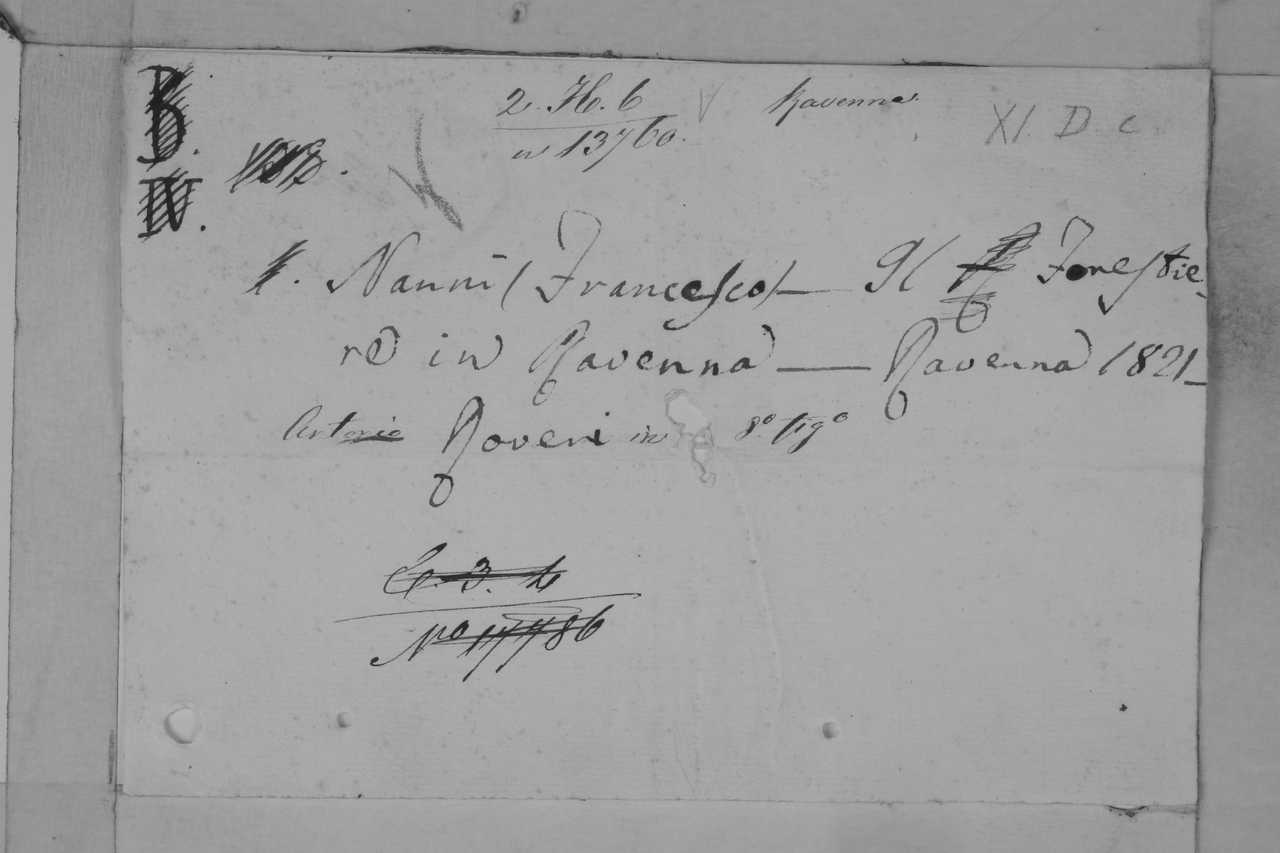 B.
IV.
2. H. 6
n 13760.
Ravenna
XI. D c
1. Nanni (Francesco) — Il Forestie-
re in Ravenna — Ravenna 1821 -
Antonio Roveri in 8º figº
C. 3. 4
Nº 17786